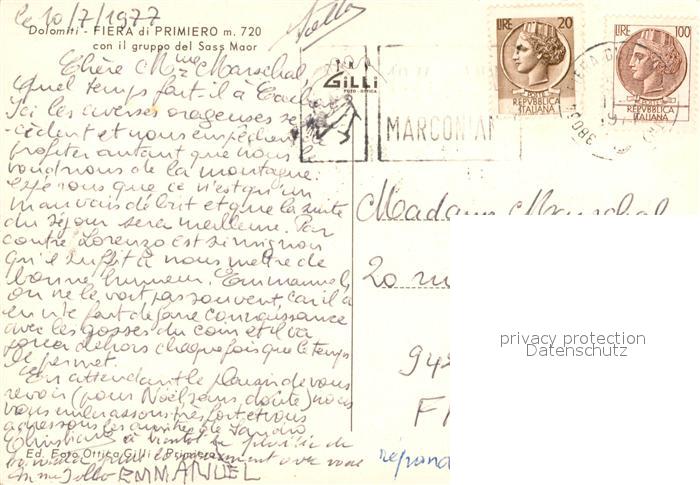 le 10/7/1977
Dolomiti - FIERA di PRIMIERO m. 720
con il gruppo del Sass Maor
Chère Mme Marschal,
quel temps fait il à
Ici les averses orageuses se
cèdent et nous empêchent de
profiter autant que nous
voudrions de la montagne.
Espérons que ce n'est qu'un
mauvais début et que la suite
du séjour sera meilleure. Par
contre Lorenzo est si mignon
qu'il suffit à nous mettre de
bonne humeur. Emmanuel,
on ne le voit pas souvent, car il a
en vite fait de faire connaissance
avec les gosses du coin et il va
jouer dehors chaque fois que le temps
le permet.
En attendant le plaisir de vous
revoir (pour Noël sans doute) nous
vous embrassons très fort et vous
adressons les amitiés de Sandro
Christiane à bientôt le plaisir de
Ed. Foto Ottica Gilli - Primiero
EMMANUEL
GILLI
FOTO - OTTICA
MARCONIAN
LIRE 20
REPVBBLICA
ITALIANA
LIRE 100
REPVBBLICA
ITALIANA
38054
Madame Marschal
20 ru
94
F
répond
privacy protection
Datenschutz